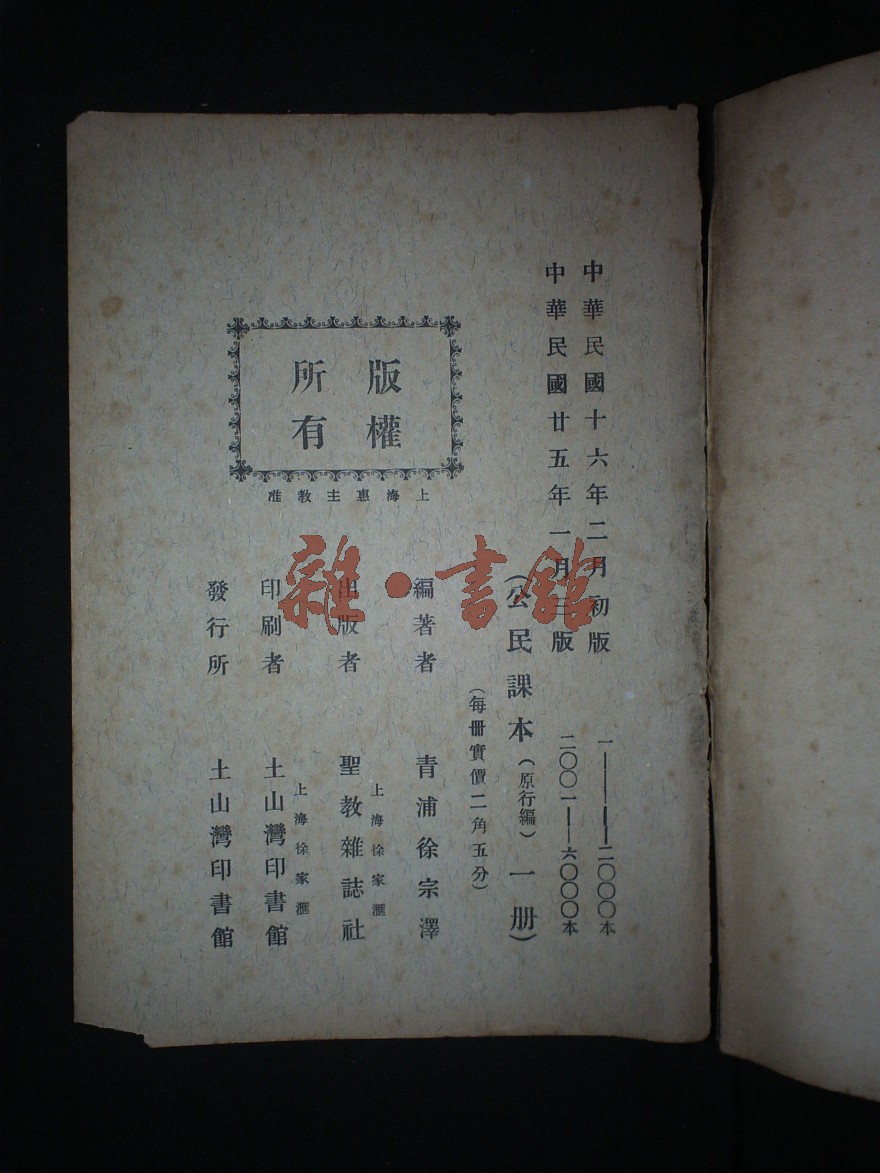 中華民國十六年二月初版 一——二〇〇〇本
中華民國廿五年一月三版 二〇〇一——六〇〇〇本
(公民課本(原行編)一册)
(每册實價二角五分)
版權
所有
上海惠主教准
編著者 青浦徐宗澤
上海徐家滙
出版者 聖教雜誌社
上海徐家滙
印刷者 土山灣印書館
發行所 土山灣印書館
雜·書館